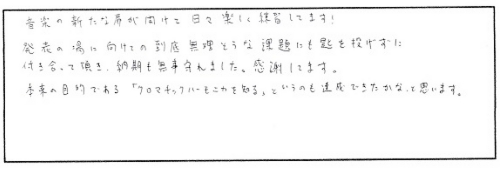 音楽の新たな扉が開けて日々楽しく練習してます!
発表の場に向けての到底無理そうな課題にも匙を投げずに
付き合って頂き、納期も無事守れました。感謝してます。
本来の目的である「クロマチックハーモニカを知る」というのも達成できたかなって思います。